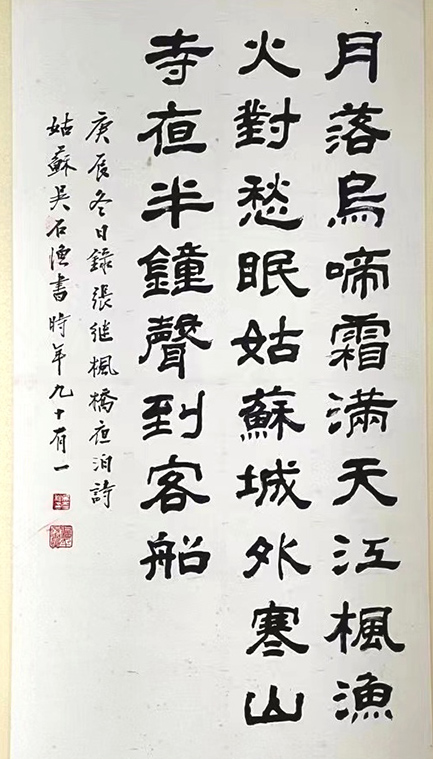 月落烏啼霜滿天江楓漁
火對愁眠姑蘇城外寒山
寺夜半鐘聲到客船
庚辰冬日錄張繼楓橋夜泊詩
姑蘇吳石漁書時年九十有一